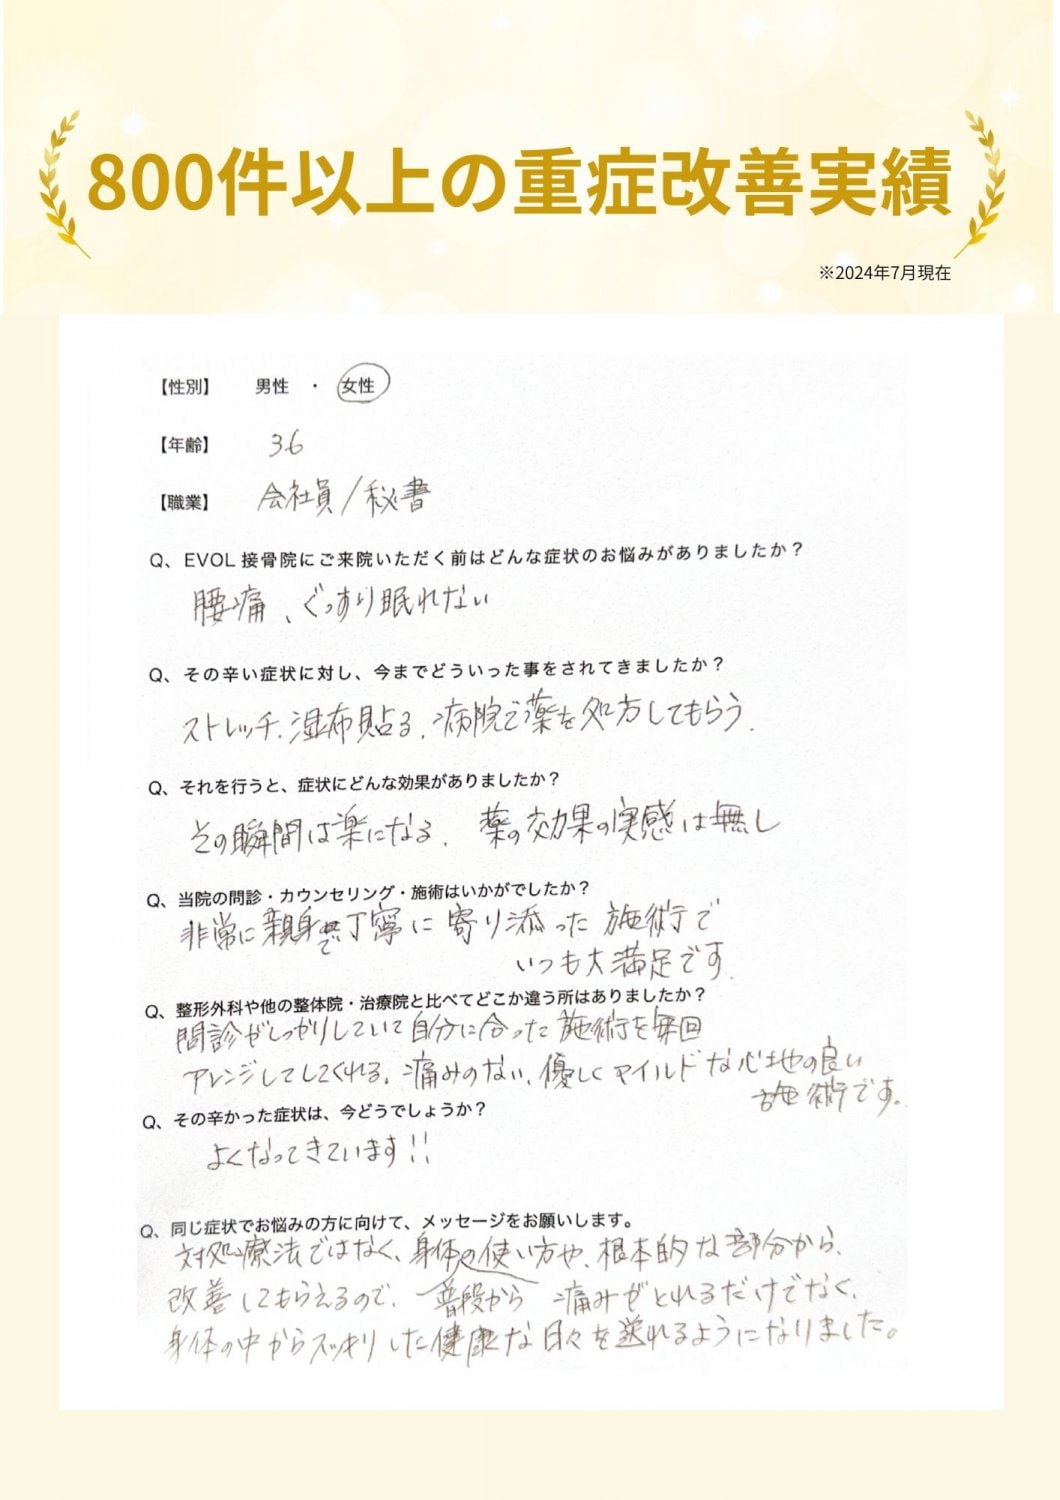 800件以上の重症改善実績
※2024年7月現在
【性別】 男性 ・ 女性
【年齢】 36
【職業】 会社員/秘書
Q、EVOL接骨院にご来院いただく前はどんな症状のお悩みがありましたか？
腰痛、ぐっすり眠れない
Q、その辛い症状に対し、今までどういった事をされてきましたか？
ストレッチ、湿布貼る、病院で薬を処方してもらう。
Q、それを行うと、症状にどんな効果がありましたか？
その瞬間は楽になる。薬の効果の実感は無し
Q、当院の問診・カウンセリング・施術はいかがでしたか？
非常に親身で丁寧に寄り添った施術で
いつも大満足です。
Q、整形外科や他の整体院・治療院と比べてどこか違う所はありましたか？
問診がしっかりしていて自分に合った施術を毎回
アレンジしてしてくれる。痛みのない、優しくマイルドな心地の良い
施術です。
Q、その辛かった症状は、今どうでしょうか？
よくなってきています!!
Q、同じ症状でお悩みの方に向けて、メッセージをお願いします。
対処療法ではなく、身体の使い方や、根本的な部分から、
改善してもらえるので、普段から 痛みがとれるだけでなく、
身体の中からスッキリした健康な日々を送れるようになりました。